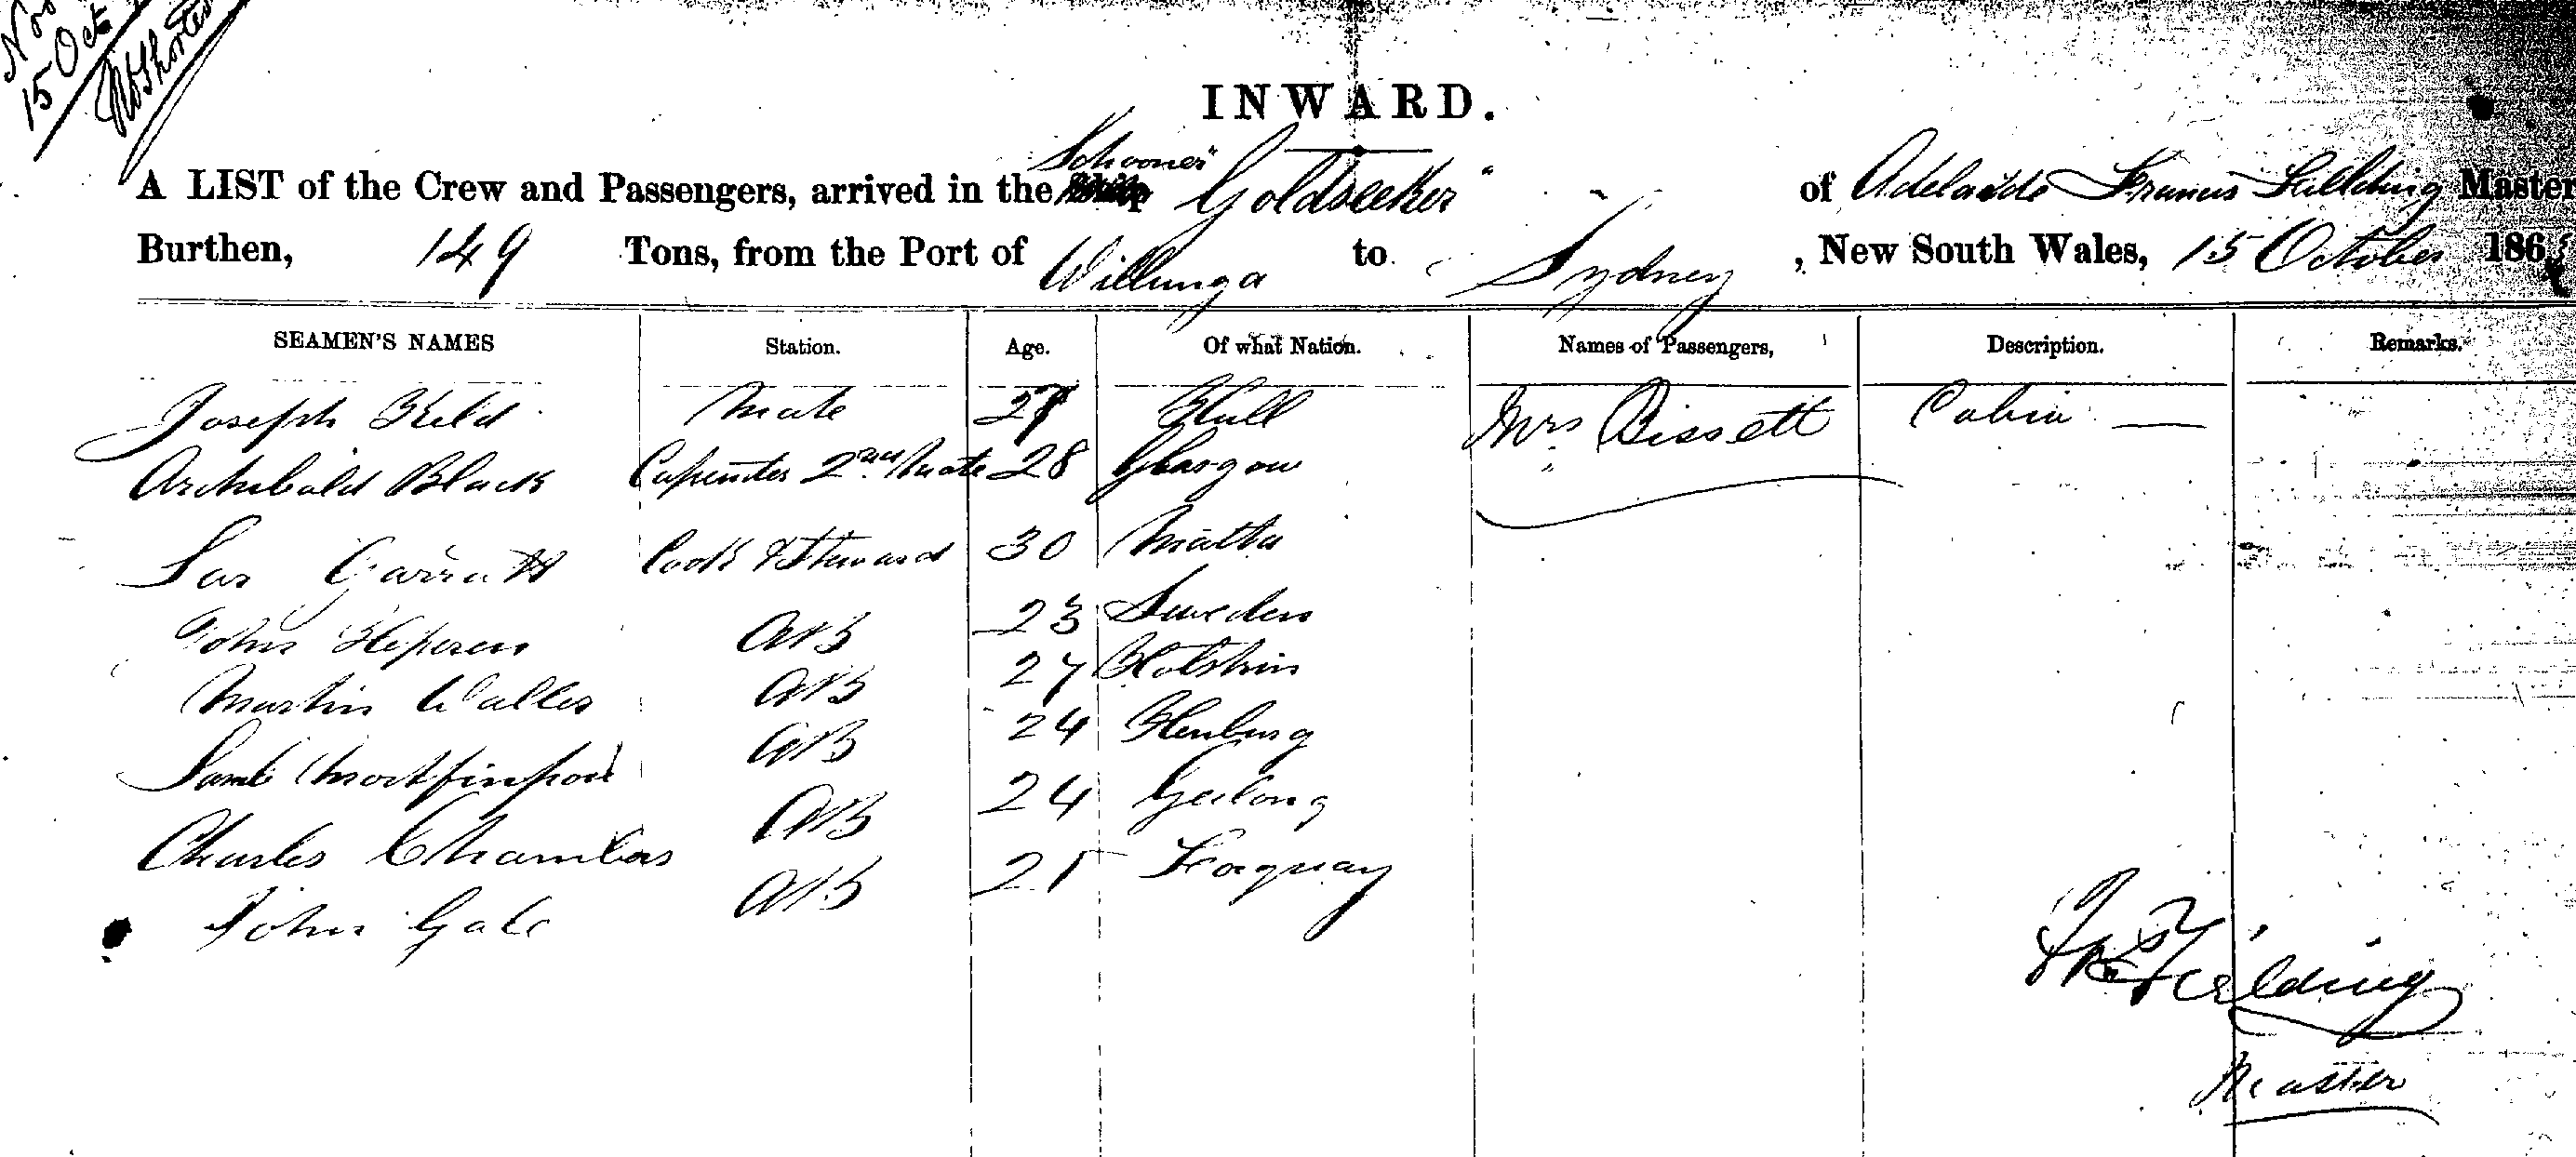 15 Oct
INWARD.
A LIST of the Crew and Passengers, arrived in the Schooner "Goldseeker" of Adelaide Francis Fielding Master
Burthen, 149 Tons, from the Port of Willunga to Sydney, New South Wales, 15 October 186
SEAMEN'S NAMES Station. Age. Of what Nation. Names of Passengers, Description. Remarks.
Joseph Field Mate Hull Mrs Bissett Cabin —
Archibald Black Carpenter 2nd Mate 28 Glasgow
Garratt Cook & Steward 30 Malta
John AB 23 Sweden
Martin Waller AB 27 Holstein
Saml AB 24
Charles Chambers AB 24 Geelong
John Gale AB 21 Torquay
Fielding
Master